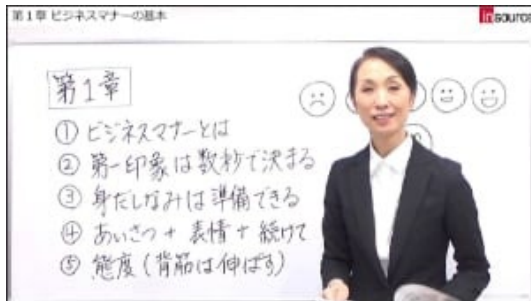 第1章 ビジネスマナーの基本
insource
第1章
① ビジネスマナーとは
② 第一印象は数秒で決まる
③ 身だしなみは準備できる
④ あいさつ + 表情 + 続けて
⑤ 態度(背筋は伸ばす)